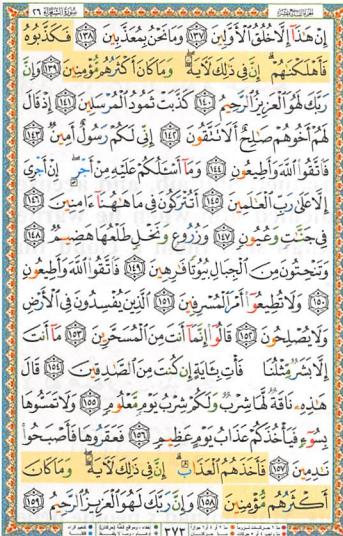 الجزء التاسع عشر سورة الشعراء ٢٦
إِنْ هَـٰذَآ إِلَّا خُلُقُ ٱلْأَوَّلِينَ ١٣٧ وَمَا نَحْنُ بِمُعَذَّبِينَ ١٣٨ فَكَذَّبُوهُ
فَأَهْلَكْنَـٰهُمْ ۗ إِنَّ فِى ذَٰلِكَ لَـَٔايَةً ۖ وَمَا كَانَ أَكْثَرُهُم مُّؤْمِنِينَ ١٣٩ وَإِنَّ
رَبَّكَ لَهُوَ ٱلْعَزِيزُ ٱلرَّحِيمُ ١٤٠ كَذَّبَتْ ثَمُودُ ٱلْمُرْسَلِينَ ١٤١ إِذْ قَالَ
لَهُمْ أَخُوهُمْ صَـٰلِحٌ أَلَا تَتَّقُونَ ١٤٢ إِنِّى لَكُمْ رَسُولٌ أَمِينٌ ١٤٣
فَٱتَّقُوا۟ ٱللَّهَ وَأَطِيعُونِ ١٤٤ وَمَآ أَسْـَٔلُكُمْ عَلَيْهِ مِنْ أَجْرٍ ۖ إِنْ أَجْرِىَ
إِلَّا عَلَىٰ رَبِّ ٱلْعَـٰلَمِينَ ١٤٥ أَتُتْرَكُونَ فِى مَا هَـٰهُنَآ ءَامِنِينَ ١٤٦
فِى جَنَّـٰتٍ وَعُيُونٍ ١٤٧ وَزُرُوعٍ وَنَخْلٍ طَلْعُهَا هَضِيمٌ ١٤٨
وَتَنْحِتُونَ مِنَ ٱلْجِبَالِ بُيُوتًا فَـٰرِهِينَ ١٤٩ فَٱتَّقُوا۟ ٱللَّهَ وَأَطِيعُونِ
١٥٠ وَلَا تُطِيعُوٓا۟ أَمْرَ ٱلْمُسْرِفِينَ ١٥١ ٱلَّذِينَ يُفْسِدُونَ فِى ٱلْأَرْضِ
وَلَا يُصْلِحُونَ ١٥٢ قَالُوٓا۟ إِنَّمَآ أَنتَ مِنَ ٱلْمُسَحَّرِينَ ١٥٣ مَآ أَنتَ
إِلَّا بَشَرٌ مِّثْلُنَا فَأْتِ بِـَٔايَةٍ إِن كُنتَ مِنَ ٱلصَّـٰدِقِينَ ١٥٤ قَالَ
هَـٰذِهِۦ نَاقَةٌ لَّهَا شِرْبٌ وَلَكُمْ شِرْبُ يَوْمٍ مَّعْلُومٍ ١٥٥ وَلَا تَمَسُّوهَا
بِسُوٓءٍ فَيَأْخُذَكُمْ عَذَابُ يَوْمٍ عَظِيمٍ ١٥٦ فَعَقَرُوهَا فَأَصْبَحُوا۟
نَـٰدِمِينَ ١٥٧ فَأَخَذَهُمُ ٱلْعَذَابُ ۗ إِنَّ فِى ذَٰلِكَ لَـَٔايَةً ۖ وَمَا كَانَ
أَكْثَرُهُم مُّؤْمِنِينَ ١٥٨ وَإِنَّ رَبَّكَ لَهُوَ ٱلْعَزِيزُ ٱلرَّحِيمُ ١٥٩
٣٧٣